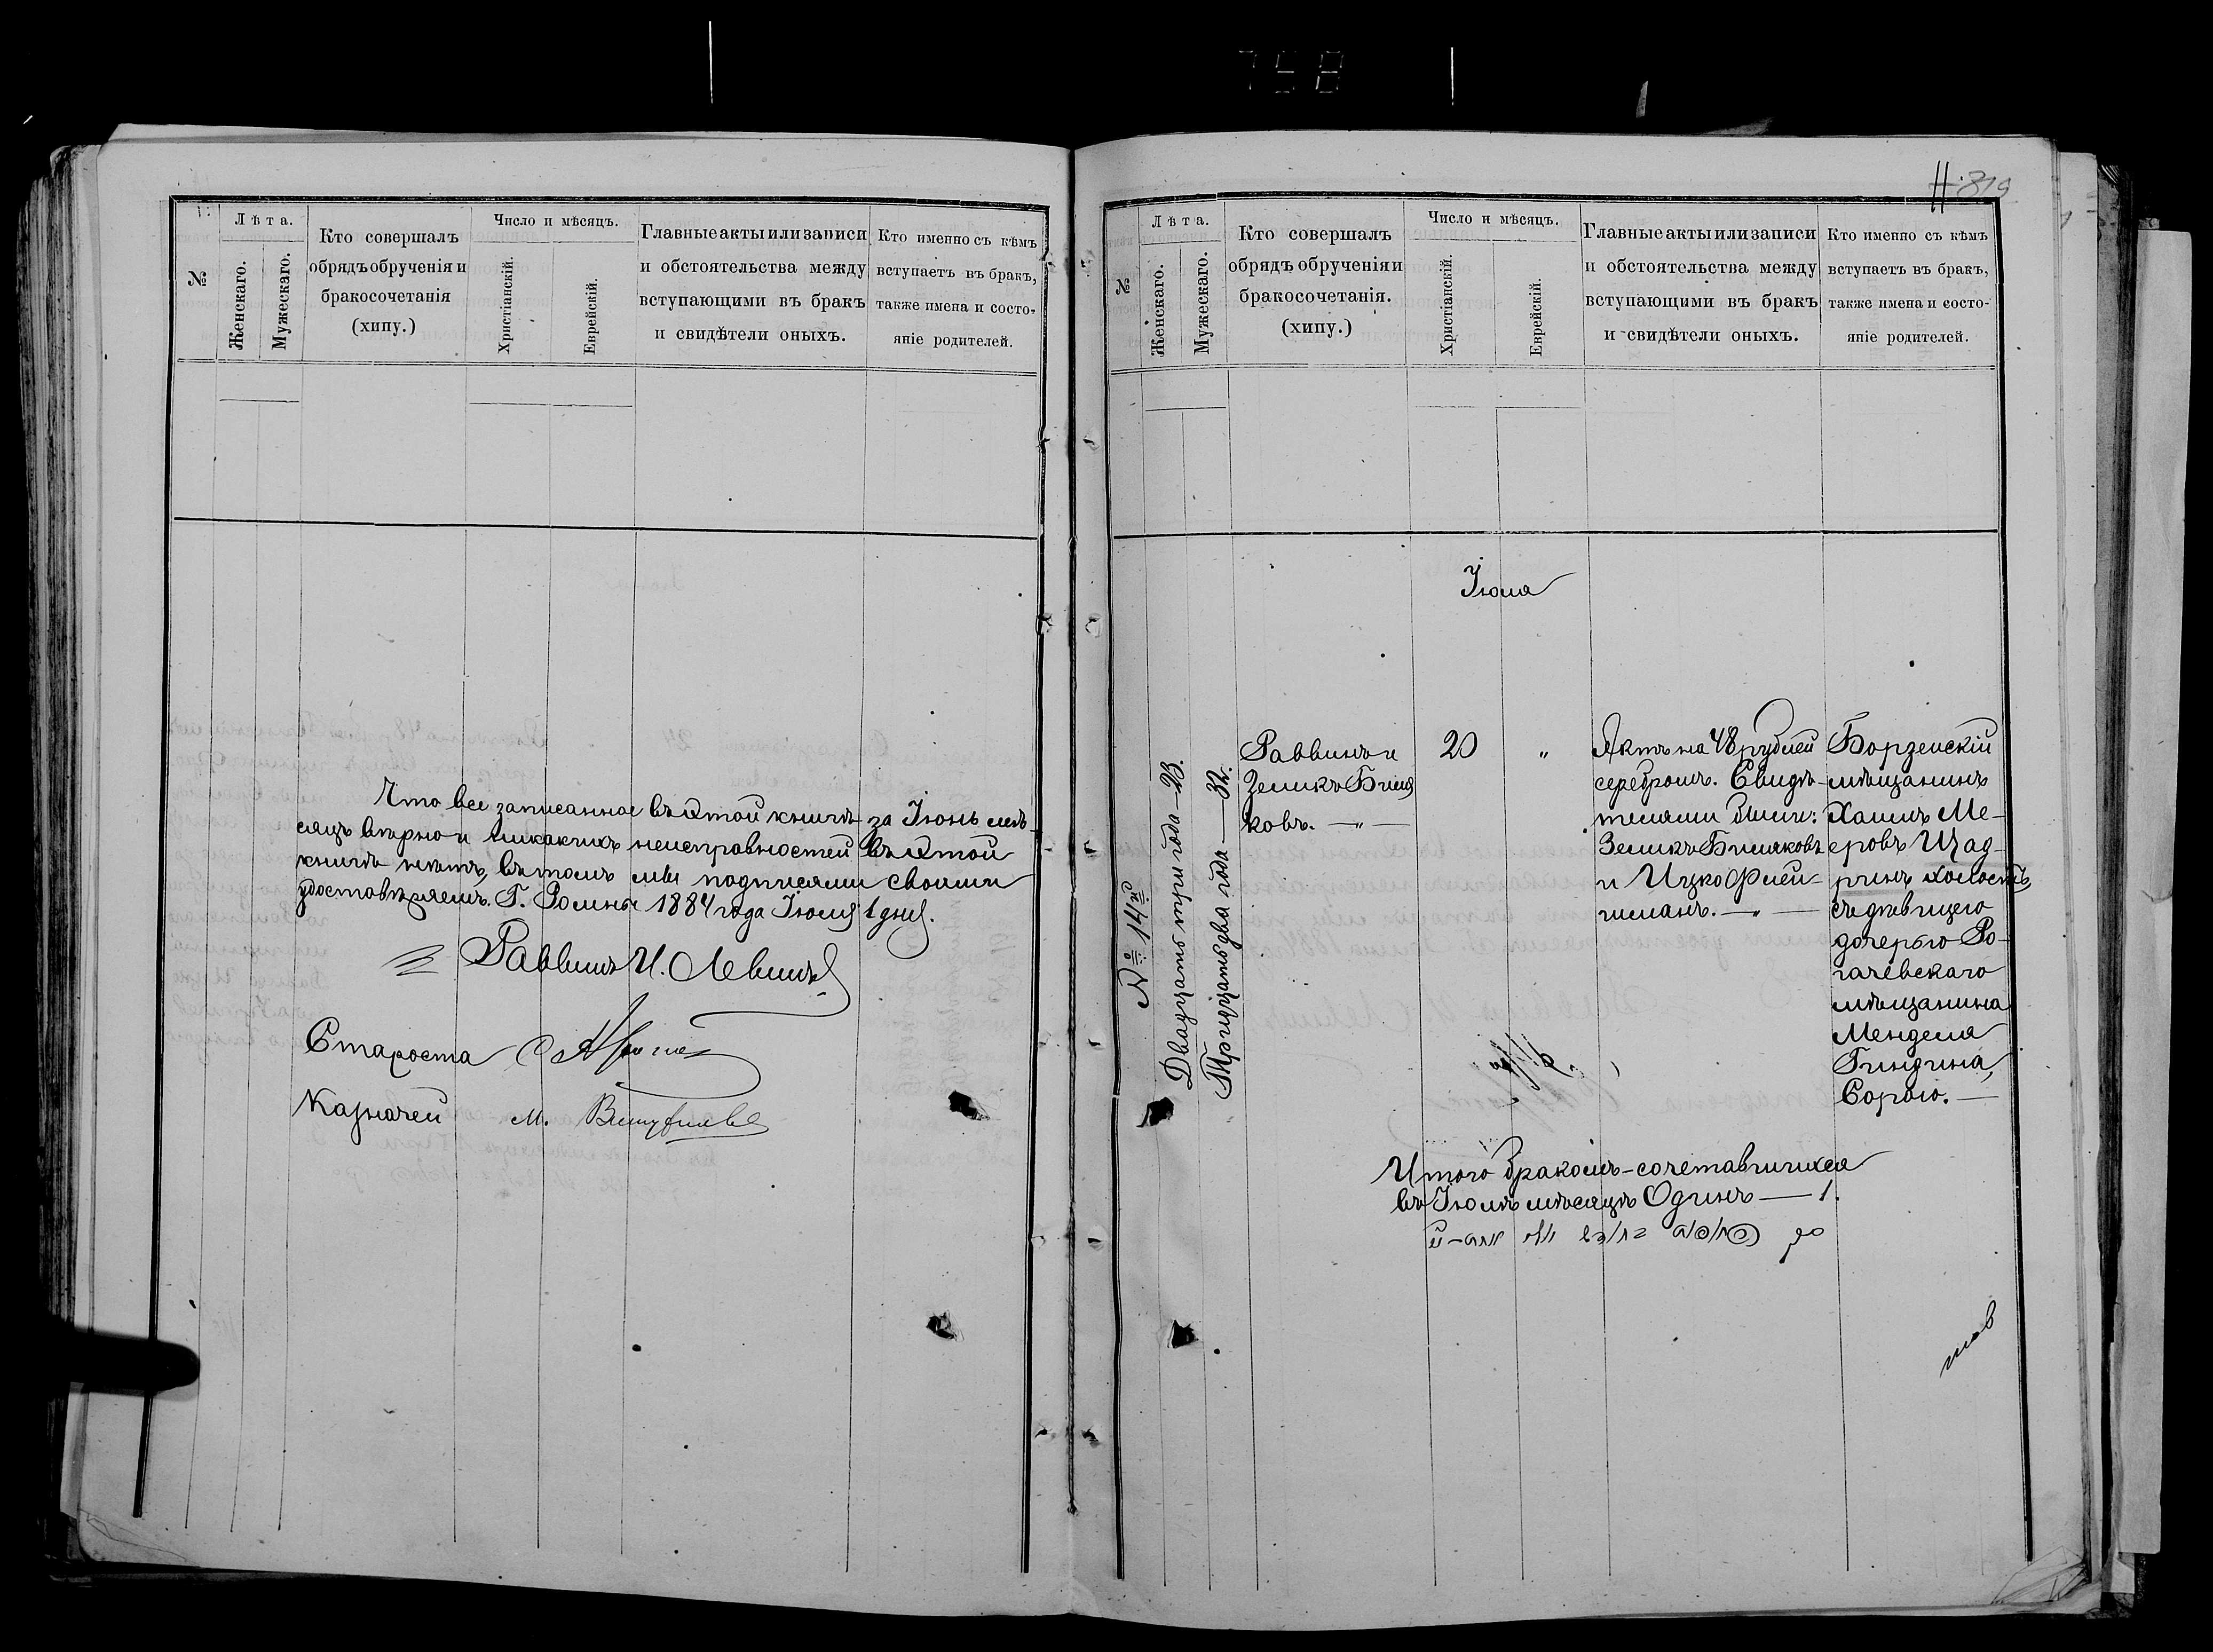 758
№
Лѣта.
Женскаго.
Мужескаго.
Кто совершалъ
обрядъ обрученія и
бракосочетанія
(хипу.)
Число и мѣсяцъ.
Христіанскій.
Еврейскій.
Главные акты или записи
и обстоятельства между
вступающими въ бракъ
и свидѣтели оныхъ.
Кто именно съ кѣмъ
вступаетъ въ бракъ,
также имена и состо-
яніе родителей.
Что все записанное въ этой книгѣ за Іюнь мѣ-
сяцъ вѣрно и никакихъ неисправностей въ этой
книгѣ нѣтъ, въ томъ мы подписями своими
удостовѣряемъ. Г. Ромны 1884 года Іюля 1 дня.
Раввинъ И. Левинъ
Староста
Казначей М.
11.
819
№
Лѣта.
Женскаго.
Мужескаго.
Кто совершалъ
обрядъ обрученія и
бракосочетанія.
(хипу.)
Число и мѣсяцъ.
Христіанскій.
Еврейскій.
Главные акты или записи
и обстоятельства между
вступающими въ бракъ
и свидѣтели оныхъ.
Кто именно съ кѣмъ
вступаетъ въ бракъ,
также имена и состо-
яніе родителей.
Іюля
№ 14й
Двадцать три года — 23.
Тридцать два года — 32.
Раввинъ и
Зеликъ Биля
ковъ. — „ —
20
„
Актъ на 48 рублей
серебромъ. Свидѣ-
телями были:
Зеликъ Биляковъ
и Ицко Флей-
шманъ. — „ —
Борзенскій
мѣщанинъ
Хаимъ Ме-
еровъ Цад-
ринъ холостъ,
съ дѣвицею
дочерью Ро-
гачевскаго
мѣщанина
Менделя
Гиндина,
Сорою. —
Итого бракомъ-сочетавшихся
въ Іюлѣ мѣсяцѣ Одинъ — 1.